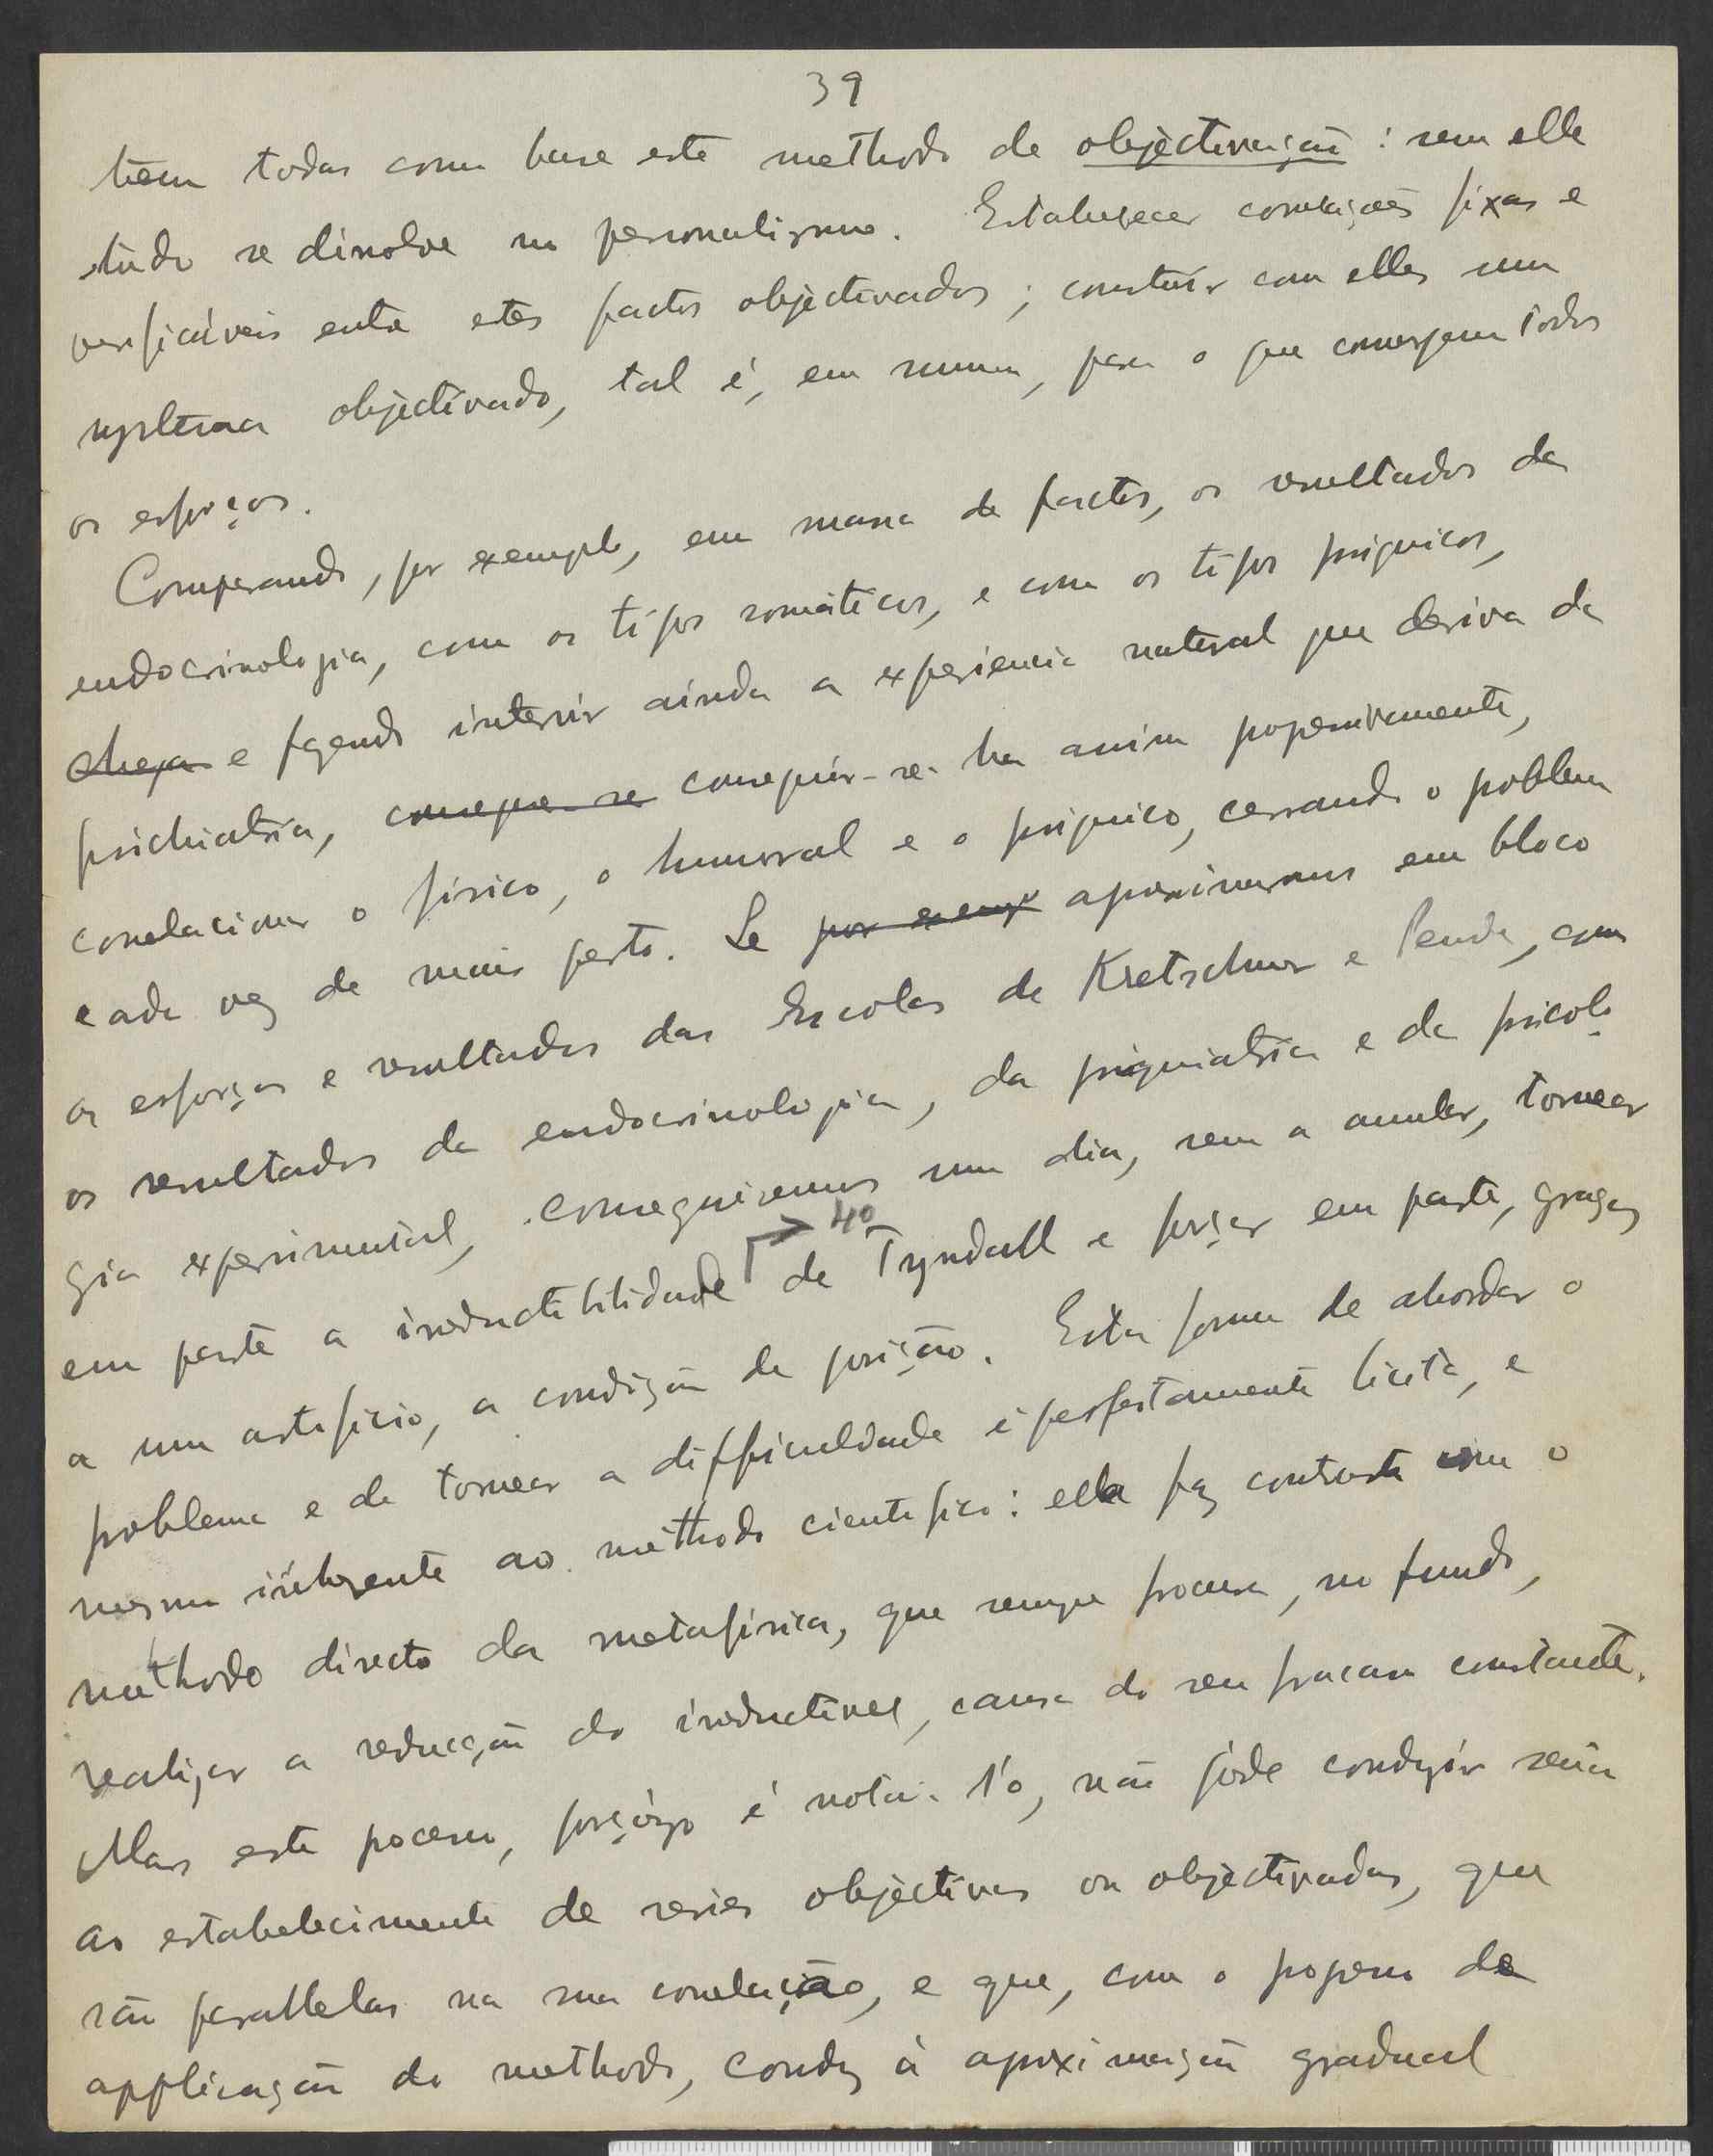 39
têem todas como base este methodo de objectivação : sem elle
tudo se dissolve no personalismo. Estabelecer correlações fixas e
verificáveis entre estes factos objectivados ; construir com elles um
systema objectivado, tal é, em summa, para o que convergem todos
os esforços.
Comparando, por exemplo, em massa de factos, os resultados da
endocrinologia, com os tipos somáticos, e com os tipos psiquicos,
chega e fazendo intervir ainda a experiencia natural que deriva da
psichiatria, consegue-se conseguir-se-ha assim progressivamente,
correlacionar o físico, o humoral e o psiquico, cerrando o problema
cada vez de mais perto. Se por exemp aproximarmos em bloco
os esforços e resultados das Escolas de Kretschmer e Pende, com
os resultados da endocrinologia, da psiquiatria e da psicolo-
gia experimental, conseguiremos um dia, sem a annular, tornear
em parte a irreductibilidade 40 de Tyndall e forçar em parte, graças
a um artificio, a condição de posição. Esta forma de abordar o
problema e de tornear a difficuldade é perfeitamente licita, e
mesmo inherente ao methodo cientifico : ella faz contraste com o
methodo directo da metafísica, que sempre procura, no fundo,
realizar a reducção do irreductivel, causa do seu fracasso constante.
Mas este processo, forçôzo é notá-l'o, não póde conduzir senão
ao estabelecimento de series objectivas ou objectivadas, que
são parallelas na sua correlação, e que, com o progresso da
applicação do methodo, conduz á aproximação gradual